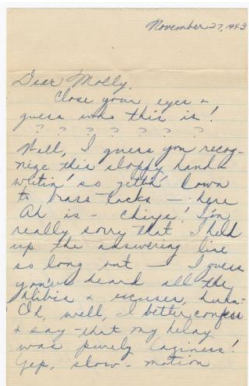 November 27, 1943
Dear Molly,
Close your eyes &
guess who this is!
? ? ? ? ? ? ?
Well, I guess you recog-
nize this sloppy hand-
writin' so gittin' down
to brass-tacks — here
Ah is — Chiye! I'm
really sorry that I held
up the answering line
so long but — I guess
you've heard all the
alibis & excuses, huh?
Oh, well, I better confess
& say - that my delay
was purely laziness!
Yep, slow-motion